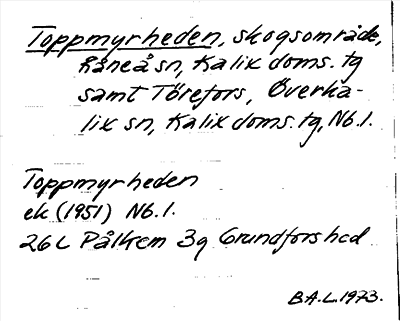 Toppmyrheden, skogsområde,
Råneå sn, Kalix doms. tg
samt Törefors, Överka-
lix sn, Kalix doms. tg, Nb. l.
Toppmyrheden
ek (1951) Nb. l.
26 L Pålkem 3g Grundforshed
B.A.L. 1973.